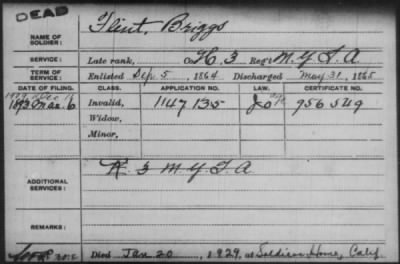 DEAD
NAME OF SOLDIER: Flint, Briggs
SERVICE: Late rank, Co H. 3 Reg't M.Y.S.A
TERM OF SERVICE: Enlisted Sep. 5, 1864 Discharged May 31, 1865
DATE OF FILING. CLASS. APPLICATION NO. LAW. CERTIFICATE NO.
1893 Mar. 6 Invalid, 1147135 956549
Widow,
Minor,
ADDITIONAL SERVICES: 3 M.Y.S.A
REMARKS:
Died Jan 20, 1929, at Soldiers Home, Calif